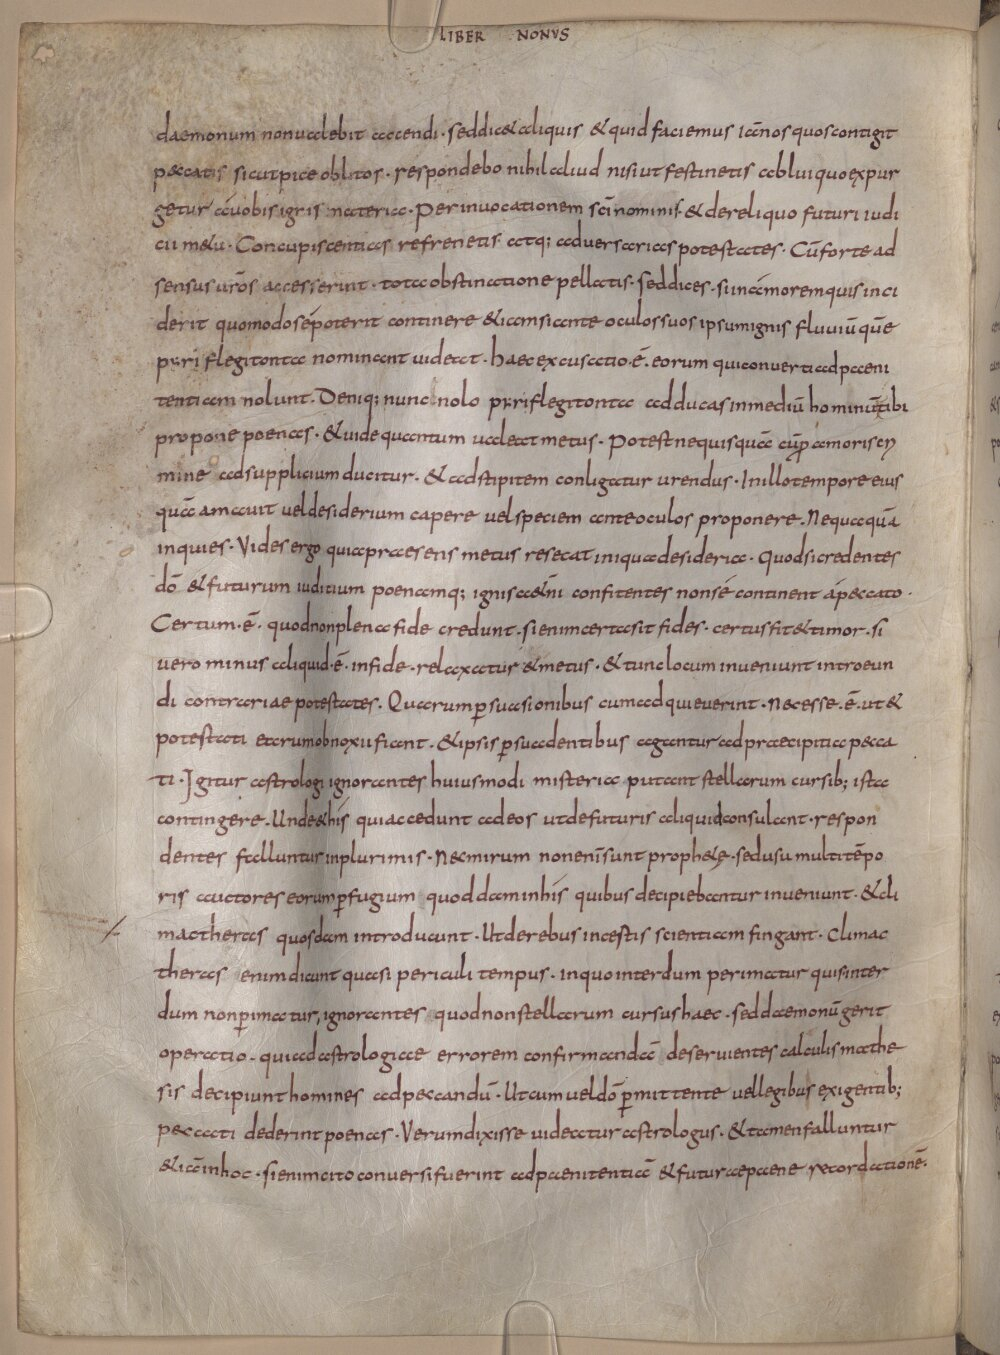 LIBER NONVS
daemonum nonualebit accendi · sed dic& aliquis & quid faciemus iā nos quos contigit
peccatis sicut pice oblitos · respondebo nihil aliud nisi ut festinetis ablui quo expur
getur a uobis igris materia · Per inuocationem sc̄i nominis · & dereliquo futuri iudi
cii m&u · Concupiscentias refrenetis atq; aduersarias potestates · Cū forte ad
sensus ur̄os accesserint · tota obstinatione pellatis · sed dices · si in amorem quis inci
derit quomodo sé poterit continere & iam si ante oculos suos ipsum ignis fluuiū quē
pyriflegitonta nominant uideat · haec excusatio · ē · eorum qui conuerti ad paeni
tentiam nolunt · Deniq; nunc nolo pyriflegitonta adducas in mediū hominū tibi
propone poenas · & uide quantum ualeat metus · Potest nequisquā cū p amoris cri
mine ad supplicium ducitur · & ad stipitem conligatur urendus · In illo tempore eius
quā amauit uel desiderium capere uel speciem ante oculos proponere · Nequaquā
inquies · Vides ergo quia praesens metus resecat iniqua desideria · Quod si credentes
dō & futurum iuditium poenamq; ignis a&̄ni confitentes non sé continent á peccato ·
Certum · ē · quod non plena fide credunt · si enim certa sit fides · certus fit & timor · si
uero minus aliquid · ē · in fide · relaxatur & metus · & tunc locum inueniunt introeun
di contrariae potestates · Quarum p̱suasionibus cum adquieuerint · necesse · ē · ut &
potestati earum obnoxii fiant · & ipsis p̱suadentibus agantur ad praecipitia pecca
ti · Igitur astrologi ignorantes huiusmodi misteria putant stellarum cursib; ista
contingere · Unde & his qui accedunt ad eos ut de futuris aliquid consulant · respon
dentes falluntur in plurimis · Nec mirum non enī sunt proph&ę · sed usu multi tēpo
ris auctores eorum p̱fugium quoddam in his quibus decipiebantur inueniunt · & cli
mactheras quosdam introducunt · Ut de rebus incestis scientiam fingant · Climac
theras enim dicunt quasi periculi tempus · in quo interdum perimatur quis inter
dum non p̱imatur, ignorantes quod non stellarum cursus haec · sed daemonū gerit
operatio · qui ad astrologiae errorem confirmandā deseruientes calculis mathe
sis decipiunt homines ad peccandū · Ut cum uel dō p̱mittente uel legibus exigentib;
peccati dederint poenas · Verum dixisse uideatur astrologus · & tamen falluntur
& iā in hoc · si enim cito conuersi fuerint ad paenitentiā & futurae paene recordationē ·